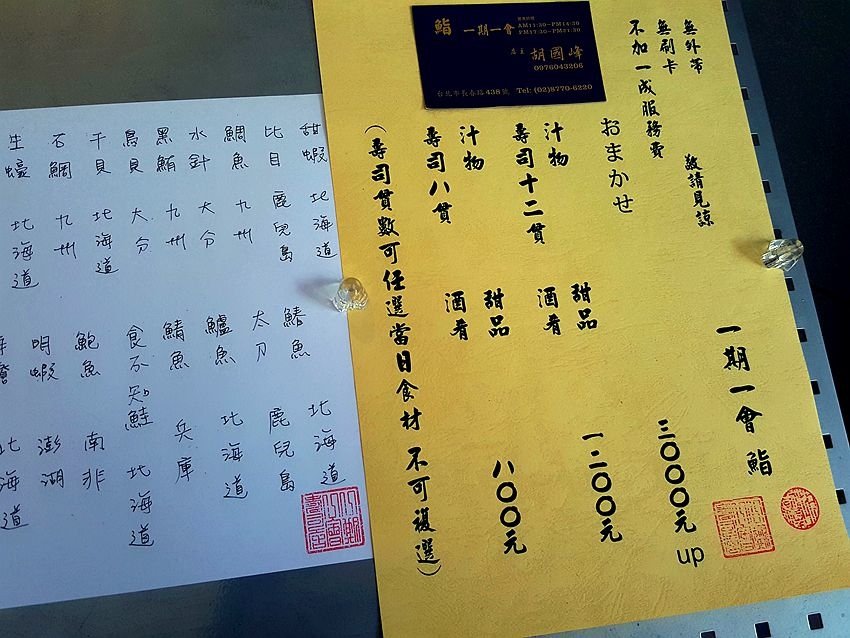 鮨 一期一會
營業時間
AM11:30~PM14:30
PM17:30~PM21:30
店主 胡國峰
0976043206
台北市長春路438號 Tel: (02)8770-6220
一期一會 鮨
無外帶
無刷卡 敬請見諒
不加一成服務費
おまかせ 三〇〇〇元up
汁物 甜品
壽司十二貫 酒肴 一二〇〇元
汁物 甜品
壽司八貫 酒肴 八〇〇元
(壽司貫數可任選當日食材 不可複選)
甜蝦 北海道
比目 鹿兒島
鯛魚 九州
水針 大分
黑鮪 九州
鳥貝 大分
干貝 北海道
石鯛 九州
生蠔 北海道
鰆魚 北海道
太刀 鹿兒島
鱸魚 北海道
鯖魚 兵庫
食不知鮭 北海道
鮑魚 南非
明蝦 澎湖
北海道